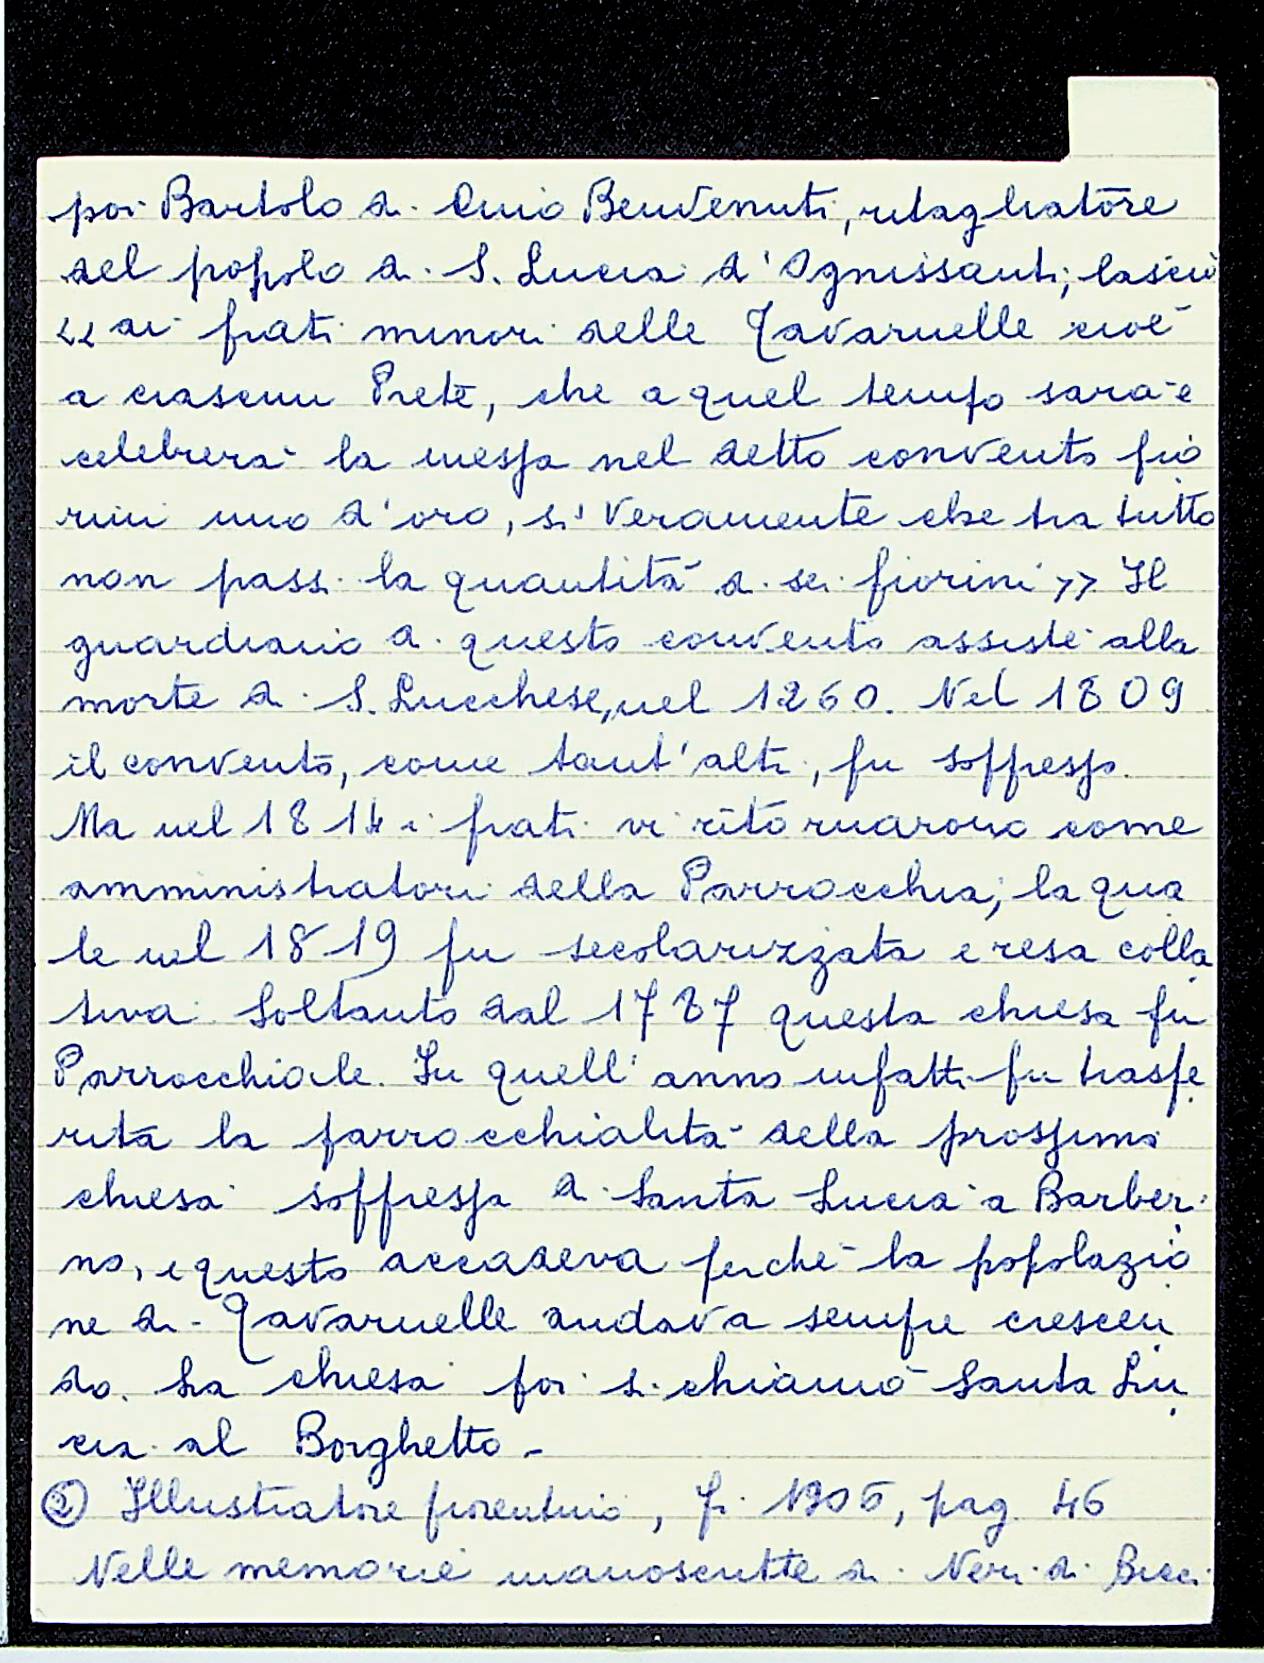 poi Bartolo di Cino Benvenuti, ritagliatore
del popolo di S. Lucia d'Ognissanti, lasciò
<< ai frati minori delle Tavarnelle cioè
a ciascun Prete, che a quel tempo sarà e
celebrerà la messa nel detto convento fio
rini uno d'oro, sì veramente che tra tutto
non passi la quantità di sei fiorini >> Il
guardiano di questo convento assisté alla
morte di S. Lucchese, nel 1260. Nel 1809
il convento, come tant'altri, fu soppresso.
Ma nel 1814 i frati vi ritornarono come
amministratori della Parrocchia, la qua
le nel 1819 fu secolarizzata e resa colla
tiva. Soltanto dal 1787 questa chiesa fu
Parrocchiale. In quell'anno infatti fu trasfe
rita la parrocchialità della prossima
chiesa soppressa di Santa Lucia a Barberi
no, e questo accadeva perché la popolazio
ne di Tavarnelle andava sempre crescen
do. La chiesa poi si chiamò Santa Lu
cia al Borghetto -
Illustratore fiorentino, p. 1906, pag 46
Nelle memorie manoscritte di Neri di Bicci